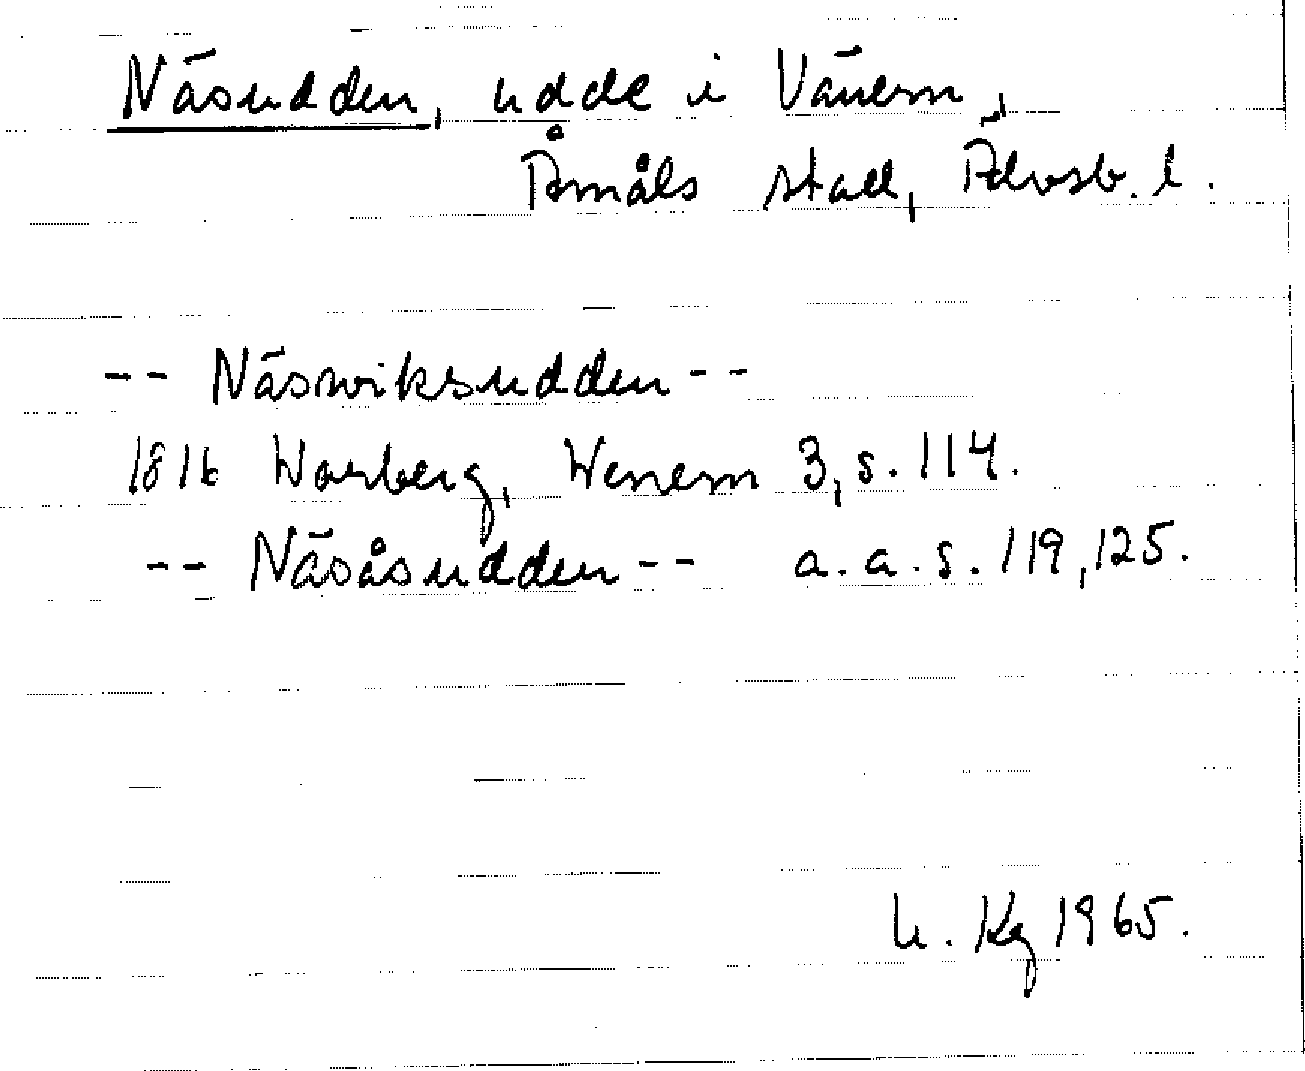 Näsudden, udde i Vänern,
Åmåls stad, Älvsb. l.
-- Näsviksudden --
1816 Warberg, Wenern 3, s. 114.
-- Näsåsudden -- a. a. s. 119, 125.
U. Kg 1965.